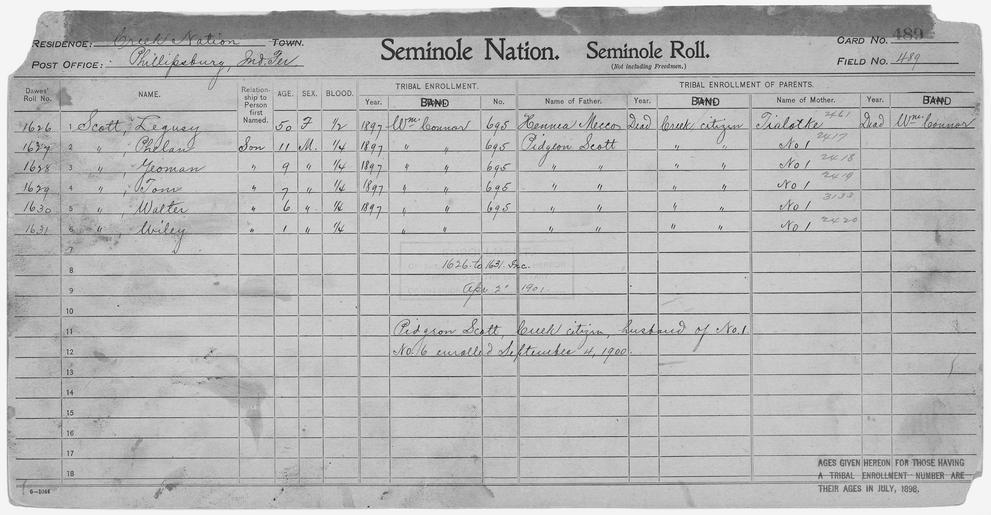 RESIDENCE: Creek Nation TOWN.
POST OFFICE: Phillipsburg, Ind. Ter.
Seminole Nation. Seminole Roll.
(Not including Freedmen.)
CARD NO. 489
FIELD NO. 489
Dawes' Roll No. NAME. Relationship to Person first Named. AGE. SEX. BLOOD. TRIBAL ENROLLMENT. TRIBAL ENROLLMENT OF PARENTS.
Year. BAND No. Name of Father. Year. BAND Name of Mother. Year. BAND
1626 1 Scott, Legusy 50 F 1/2 1897 Wm. Connor 695 Hennea Mecco Dead Creek citizen Tialotke 2461 Dead Wm. Connor
1627 2 " , Phelan Son 11 M. 1/4 1897 " " 695 Pidgeon Scott " " No 1 2417
1628 3 " , Yeoman " 9 " 1/4 1897 " " 695 " " " " No 1 2418
1629 4 " , Tom " 7 " 1/4 1897 " " 695 " " " " No 1 2419
1630 5 " , Walter " 6 " 1/4 1897 " " 695 " " " " No 1 3133
1631 6 " , Wiley " 1 " 1/4 " " " " " " No 1 2420
7
8 1626 to 1631. Inc.
9 Apr 2" 1901.
10
11 Pidgeon Scott, Creek citizen, husband of No.1
12 No. 6 enrolled September 4, 1900.
13
14
15
16
17
18
AGES GIVEN HEREON FOR THOSE HAVING
A TRIBAL ENROLLMENT NUMBER ARE
THEIR AGES IN JULY, 1898.
6-1044